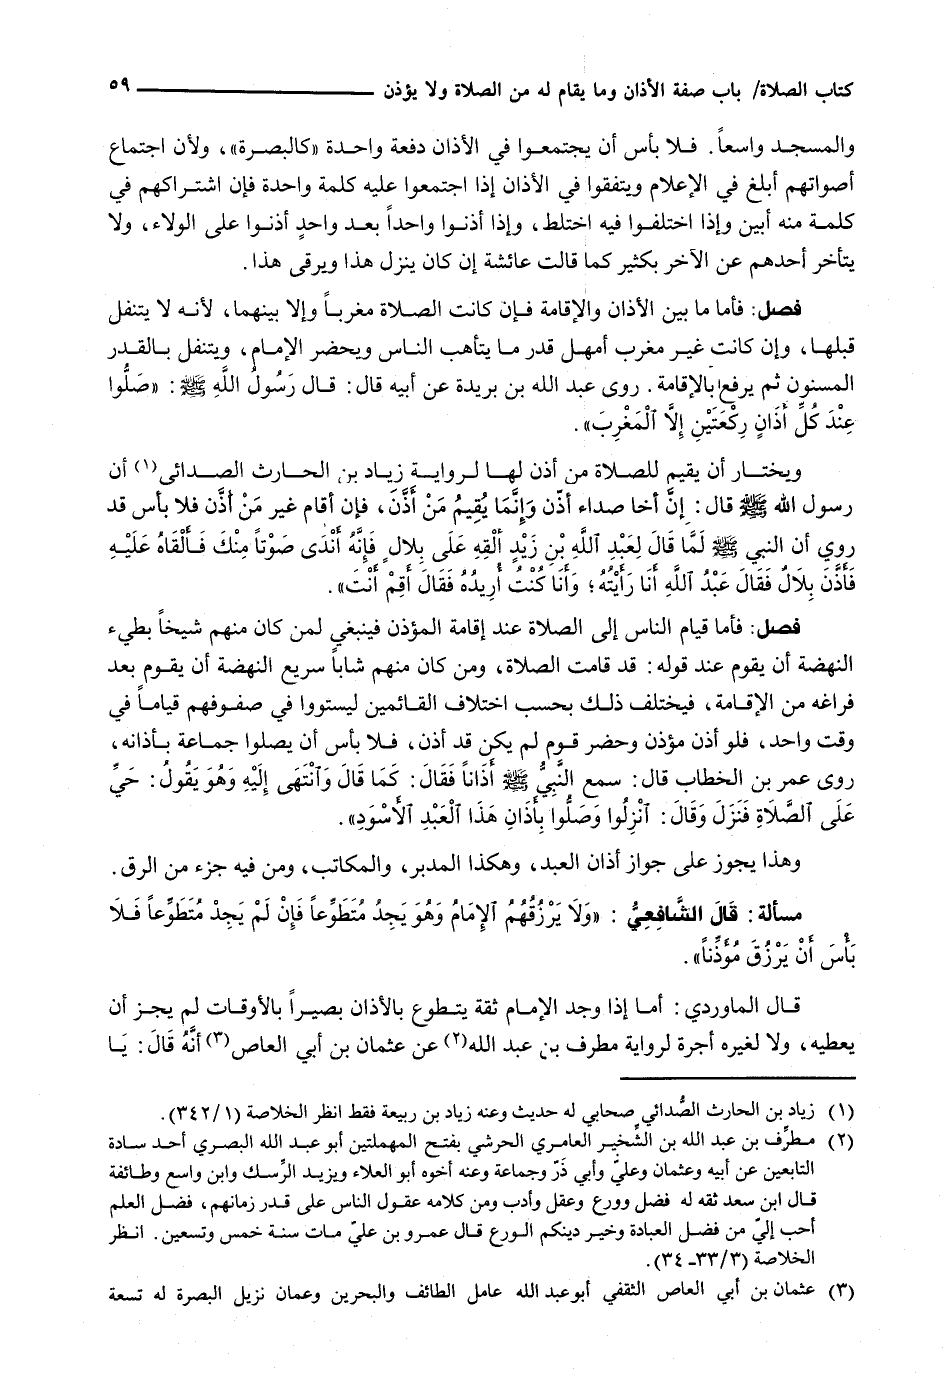 كتاب الصلاة/ باب صفة الأذان وما يقام له من الصلاة ولا يؤذن ٥٩
والمسجد واسعاً. فلا بأس أن يجتمعوا في الأذان دفعة واحدة «كالبصرة»، ولأن اجتماع
أصواتهم أبلغ في الإعلام ويتفقوا في الأذان إذا اجتمعوا عليه كلمة واحدة فإن اشتراكهم في
كلمة منه أبين وإذا اختلفوا فيه اختلط، وإذا أذنوا واحداً بعد واحدٍ أذنوا على الولاء، ولا
يتأخر أحدهم عن الآخر بكثير كما قالت عائشة إن كان ينزل هذا ويرقى هذا.
فصل: فأما ما بين الأذان والإقامة فإن كانت الصلاة مغرباً وإلا بينهما، لأنه لا يتنفل
قبلها، وإن كانت غير مغرب أمهل قدر ما يتأهب الناس ويحضر الإمام، ويتنفل بالقدر
المسنون ثم يرفع بالإقامة. روى عبد الله بن بريدة عن أبيه قال: قال رَسُولُ اللَّهِ ﷺ: «صَلُّوا
عِنْدَ كُلِّ أَذَانٍ رِكْعَتَيْنِ إِلَّا ٱلْمَغْرِبَ».
ويختار أن يقيم للصلاة من أذن لها لرواية زياد بن الحارث الصدائي(١) أن
رسول الله ﷺ قال: إنَّ أخا صداء أذّن وَإِنَّمَا يُقِيمُ مَنْ أَذَّنَ، فإن أقام غير مَنْ أذّن فلا بأس قد
روي أن النبي ﷺ لَمَّا قَالَ لِعَبْدِ ٱللَّهِ بْنِ زَيْدٍ أَلْقِهِ عَلَى بِلالٍ فَإِنَّهُ أَنْدَى صَوْتاً مِنْكَ فَأَلْقَاهُ عَلَيْهِ
فَأَذَّنَ بِلَالٌ فَقَالَ عَبْدُ ٱللَّهِ أَنَا رَأَيْتُهُ؛ وَأَنَا كُنْتُ أُرِيدُهُ فَقَالَ أَقِمْ أَنْتَ».
فصل: فأما قيام الناس إلى الصلاة عند إقامة المؤذن فينبغي لمن كان منهم شيخاً بطيء
النهضة أن يقوم عند قوله: قد قامت الصلاة، ومن كان منهم شاباً سريع النهضة أن يقوم بعد
فراغه من الإقامة، فيختلف ذلك بحسب اختلاف القائمين ليستووا في صفوفهم قياماً في
وقت واحد، فلو أذن مؤذن وحضر قوم لم يكن قد أذن، فلا بأس أن يصلوا جماعة بأذانه،
روى عمر بن الخطاب قال: سمع النَّبِيُّ ﷺ أَذَاناً فَقَالَ: كَمَا قَالَ وَٱنْتَهَى إِلَيْهِ وَهُوَ يَقُولُ: حَيِّ
عَلَى ٱلصَّلَاةِ فَنَزَلَ وَقَالَ: ٱنْزِلُوا وَصَلُّوا بِأَذَانِ هَذَا ٱلْعَبْدِ ٱلْأَسْوَدِ».
وهذا يجوز على جواز أذان العبد، وهكذا المدبر، والمكاتب، ومن فيه جزء من الرق.
مسألة: قَالَ الشَّافِعِيُّ: «وَلَا يَرْزُقُهُمُ ٱلإِمَامُ وَهُوَ يَجِدُ مُتَطَوِّعاً فَإِنْ لَمْ يَجِدْ مُتَطَوِّعاً فَلَا
بَأْسَ أَنْ يَرْزُقَ مُؤَذِّناً».
قال الماوردي: أما إذا وجد الإمام ثقة يتطوع بالأذان بصيراً بالأوقات لم يجز أن
يعطيه، ولا لغيره أجرة لرواية مطرف بن عبد الله(٢) عن عثمان بن أبي العاص(٣) أنَّهُ قَالَ: يَا
(١) زياد بن الحارث الصُّدائي صحابي له حديث وعنه زياد بن ربيعة فقط انظر الخلاصة (٣٤٢/١).
(٢) مطرِّف بن عبد الله بن الشّخير العامري الحرشي بفتح المهملتين أبو عبد الله البصري أحد سادة
التابعين عن أبيه وعثمان وعليّ وأبي ذَرّ وجماعة وعنه أخوه أبو العلاء ويزيد الرِّسك وابن واسع وطائفة
قال ابن سعد ثقه له فضل وورع وعقل وأدب ومن كلامه عقول الناس على قدر زمانهم، فضل العلم
أحب إليّ من فضل العبادة وخير دينكم الورع قال عمرو بن عليّ مات سنة خمس وتسعين. انظر
الخلاصة (٣٣/٣ـ ٣٤).
(٣) عثمان بن أبي العاص الثقفي أبوعبد الله عامل الطائف والبحرين وعمان نزيل البصرة له تسعة